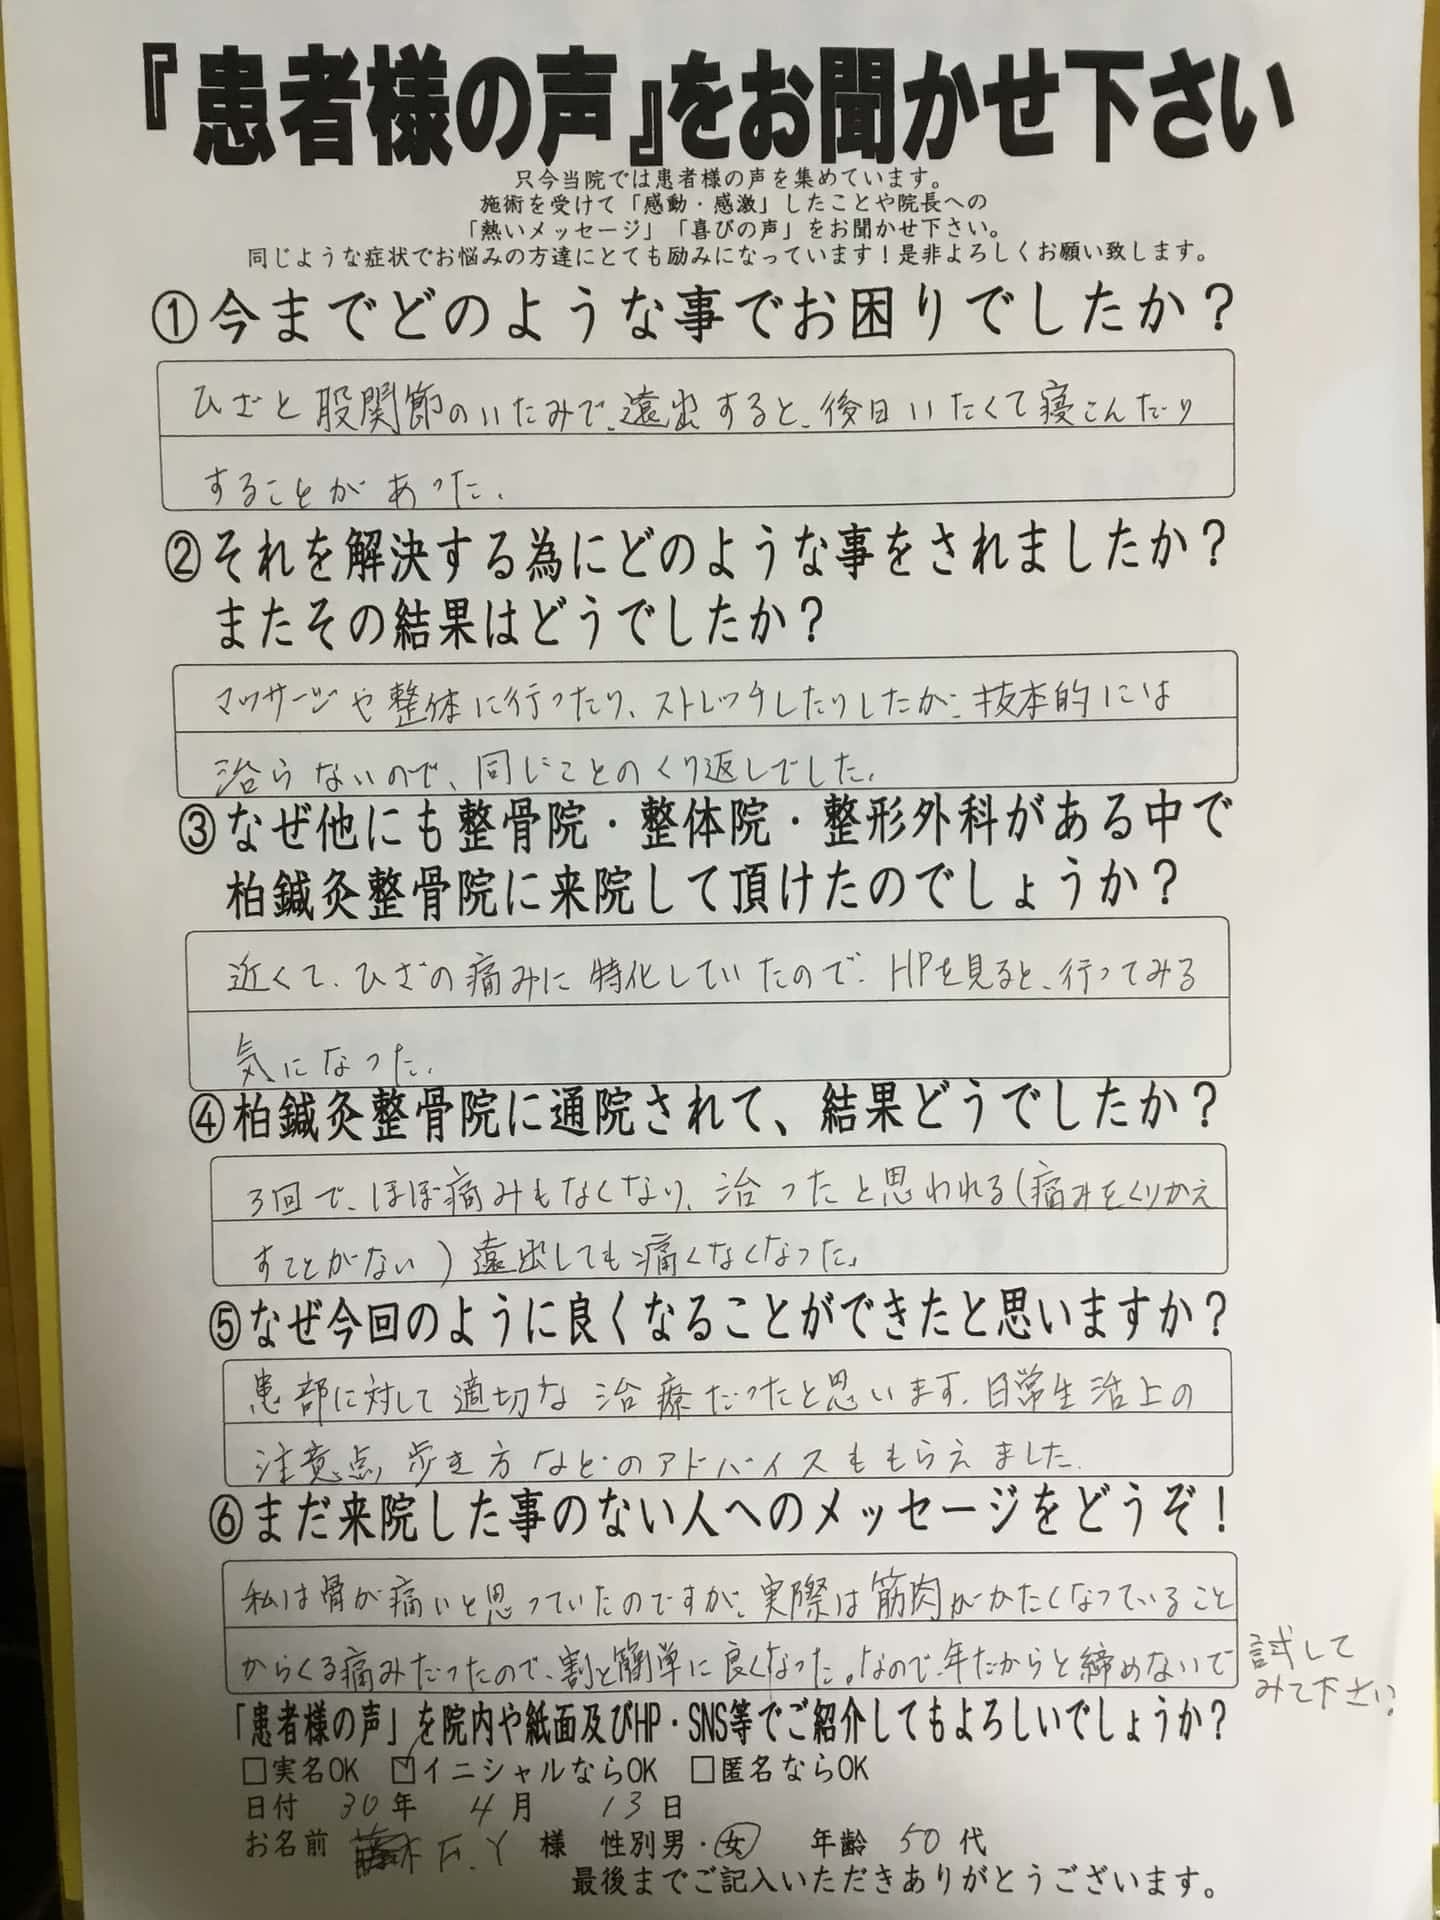 『患者様の声』をお聞かせ下さい
只今当院では患者様の声を集めています。
施術を受けて「感動・感激」したことや院長への
「熱いメッセージ」「喜びの声」をお聞かせ下さい。
同じような症状でお悩みの方達にとても励みになっています！是非よろしくお願い致します。
①今までどのような事でお困りでしたか？
ひざと股関節のいたみで、遠出すると、後日いたくて寝こんだり
することがあった。
②それを解決する為にどのような事をされましたか？
またその結果はどうでしたか？
マッサージや整体に行ったり、ストレッチしたりしたが、抜本的には
治らないので、同じことのくり返しでした。
③なぜ他にも整骨院・整体院・整形外科がある中で
柏鍼灸整骨院に来院して頂けたのでしょうか？
近くて、ひざの痛みに特化していたので、HPを見ると、行ってみる
気になった。
④柏鍼灸整骨院に通院されて、結果どうでしたか？
3回で、ほぼ痛みもなくなり、治ったと思われる(痛みをくりかえ
すことがない)遠出しても痛くなくなった。
⑤なぜ今回のように良くなることができたと思いますか？
患部に対して適切な治療だったと思います。日常生活上の
注意点、歩き方などのアドバイスももらえました。
⑥まだ来院した事のない人へのメッセージをどうぞ！
私は骨が痛いと思っていたのですが、実際は筋肉がかたくなっていること
からくる痛みだったので、割と簡単に良くなった。なので、年だからと締めないで試して
みて下さい。
「患者様の声」を院内や紙面及びHP・SNS等でご紹介してもよろしいでしょうか？
□実名OK ☑イニシャルならOK □匿名ならOK
日付 30年 4月 13日
お名前 F.Y 様 性別男・女 年齢 50代
最後までご記入いただきありがとうございます。